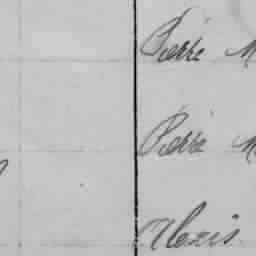 Pierre M
Pierre M
Alexis